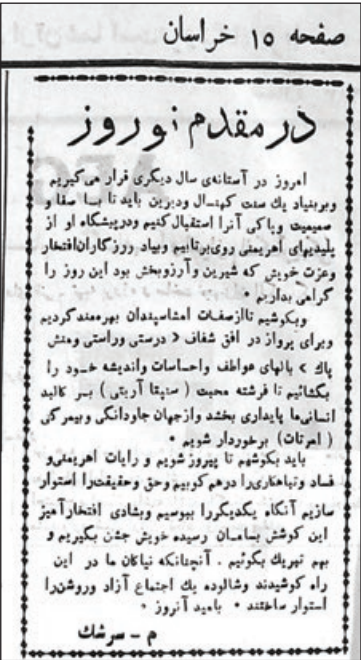 صفحه ۱۵ خراسان
در مقدم نوروز
امروز در آستانه‌ی سال دیگری قرار می‌گیریم
وبربنیاد یك سنت كهنسال ودیرین باید تا بــا صفا و
صمیمیت وپاكی آنرا استقبال كنیم ودرپیشگاه او از
پلیدیهای اهریمنی روی‌برتابیم وبیاد روزگاران‌افتخار
وعزت خویش كه شیرین وآرزوبخش بود این روز را
گرامی بداریم •
وبكوشیم تاازصفـات امشاسپندان بهره‌مندگردیم
وبرای پرواز در افق شفاف « درستی وراستی ومنش
پاك » بالهای عواطف واحساسات واندیشه خـود را
بگشائیم تا فرشته محبت ( سنپتا آریتی ) بــر كالبد
انسانی‌ما پایداری بخشد وازجهان جاودانگی وبیمرگی
( امرتات ) برخوردار شویم •
باید بكوشیم تا پیروز شویم و رایات اهریمنی‌و
فساد وتباهكاری‌را درهم كوبیم وحق وحقیقت‌را استوار
سازیم آنگاه یكدیگررا ببوسیم وبشادی افتخارآمیز
این كوشش بسامـان رسیده خویش جشن بگیریم و
بهم تبریك بگوئیم . آنچنانكه نیاكان ما در این
راه كوشیدند وشالوده یك اجتماع آزاد وروشن‌را
استوار ساختند • بامید آنروز •
م – سرشك